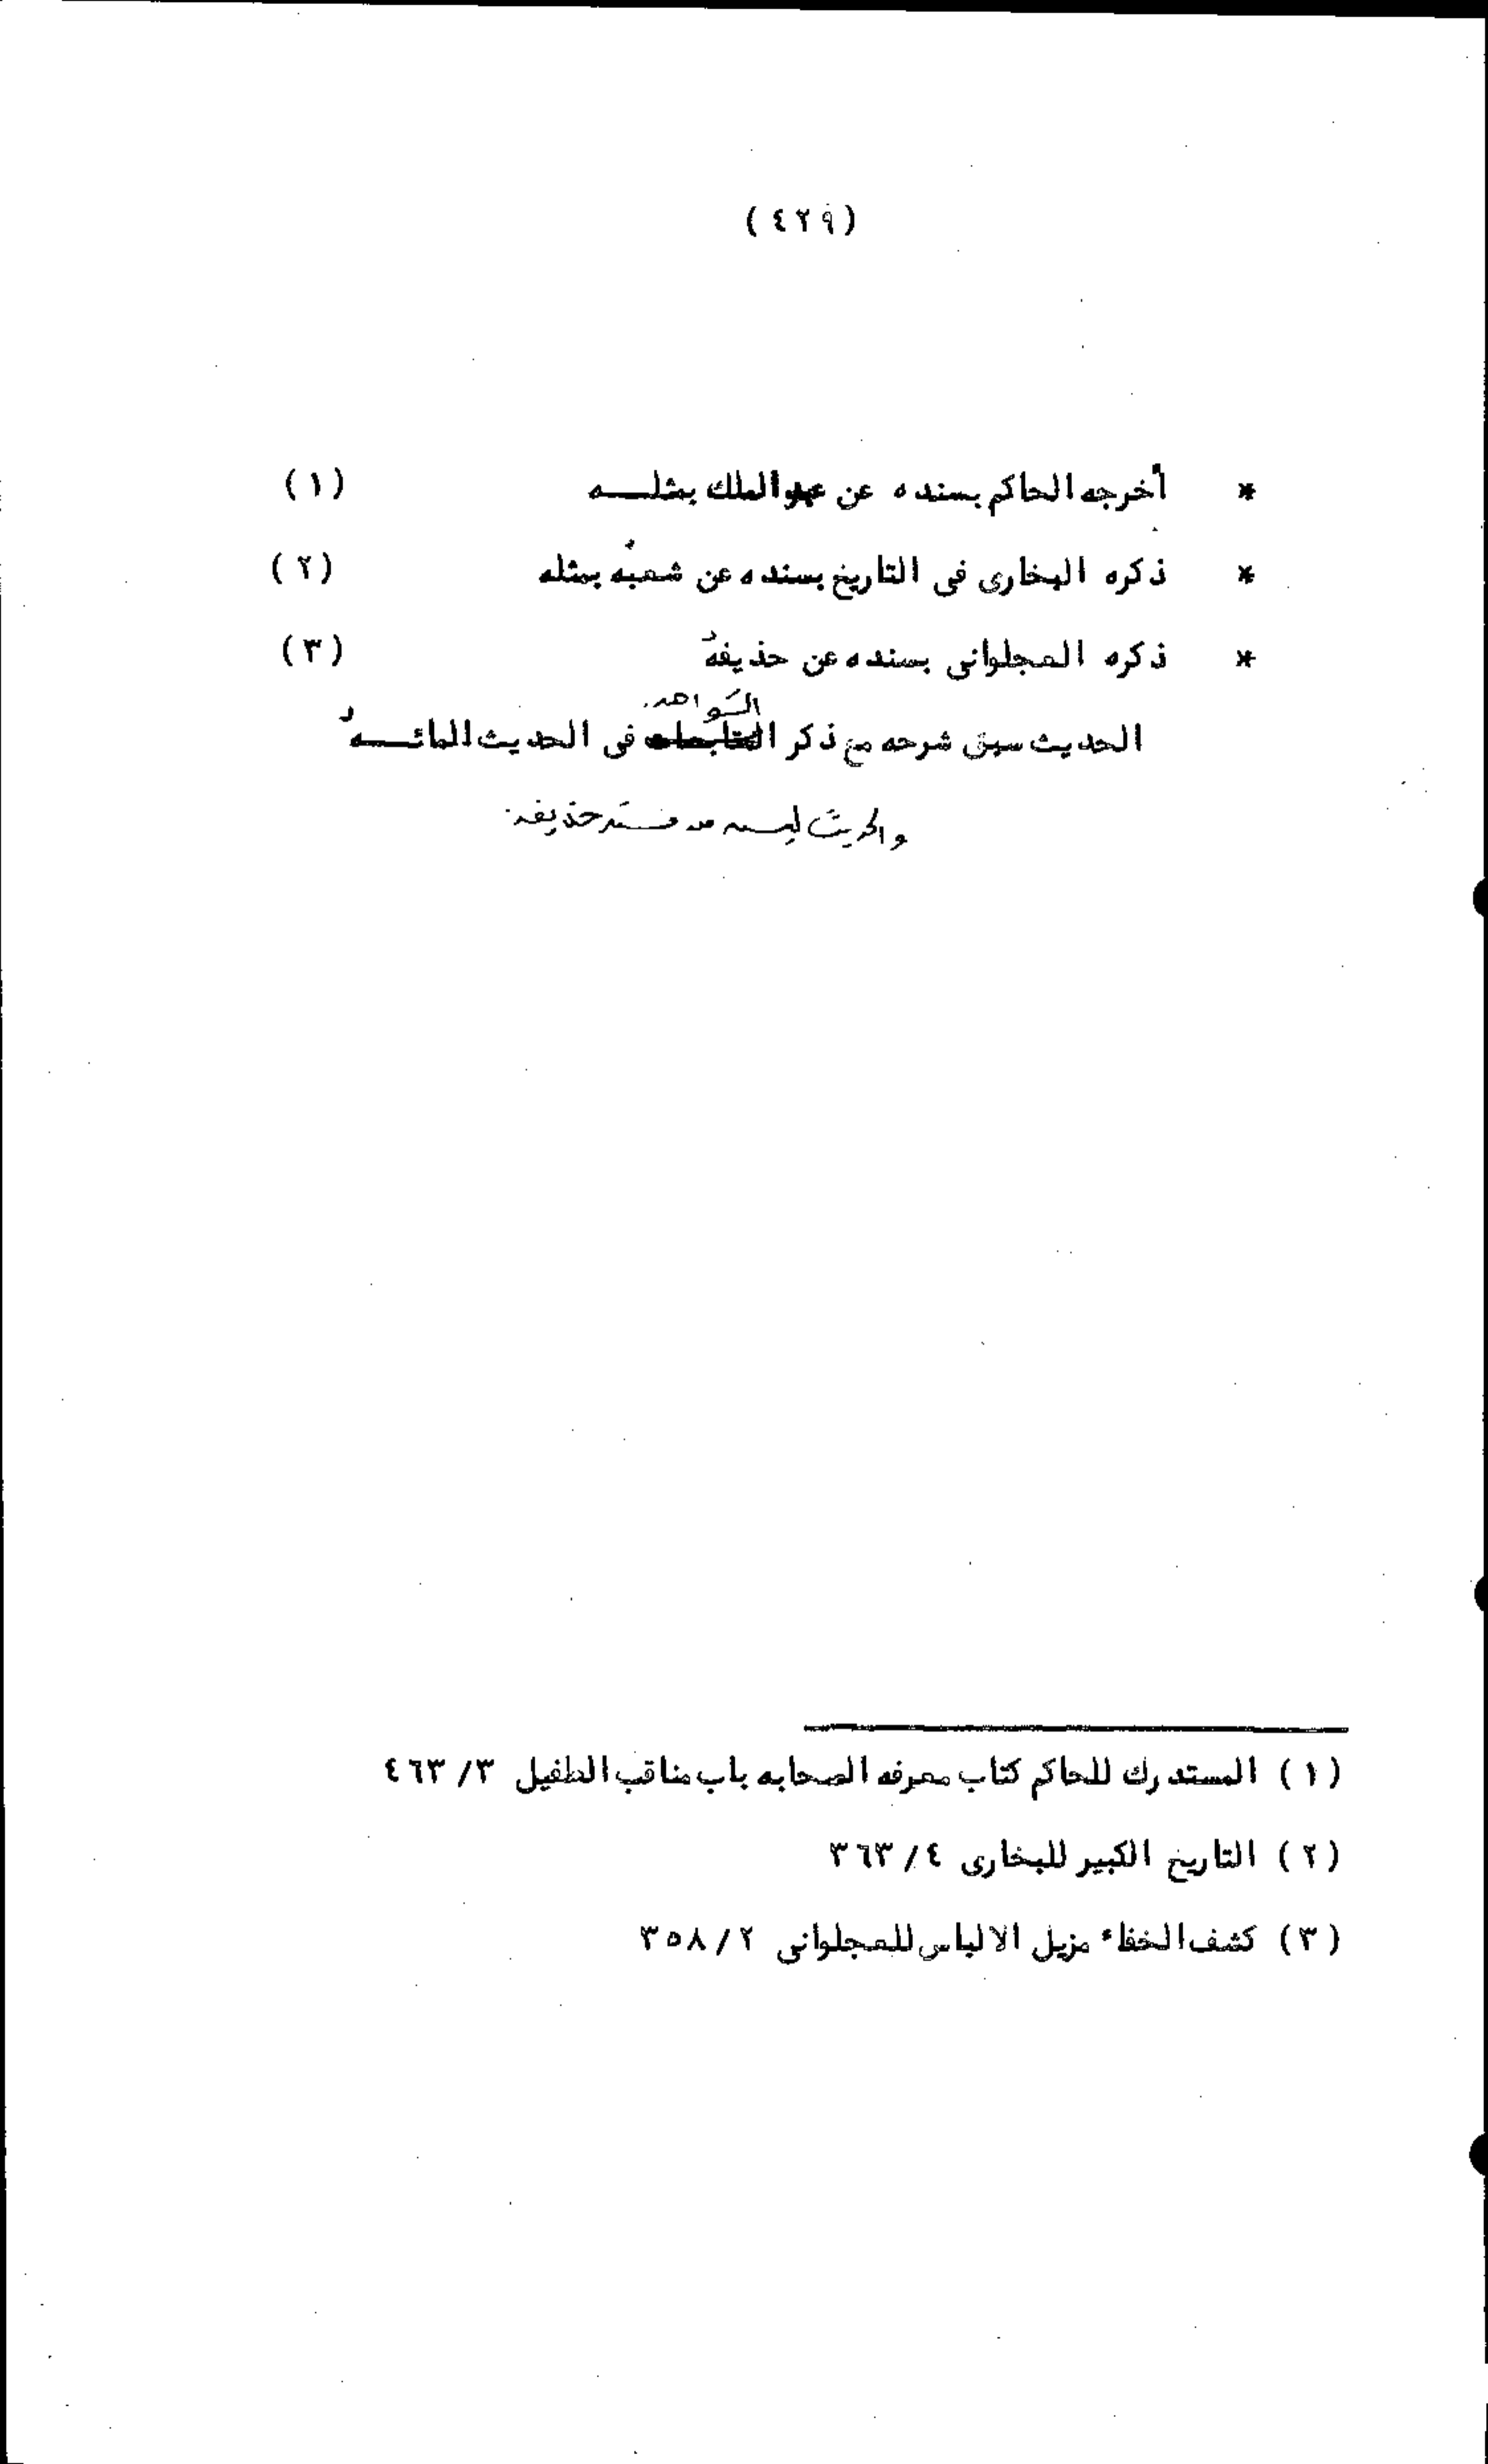 (٤٢٩)
* أخرجه الحاكم بسنده عن عبد الملك بمثلــه (١)
* ذكره البخارى فى التاريخ بسنده عن شعبه بمثله (٢)
* ذكره العجلوانى بسنده عن حذيفة (٣)
الشواهد
الحديث سبق شرحه مع ذكر المتابعات فى الحديث المائــه
والحديث ليس من مسند حذيفة.
(١) المستدرك للحاكم كتاب معرفه الصحابه باب مناقب الطفيل ٣/ ٤٦٣
(٢) التاريخ الكبير للبخارى ٤/ ٣٦٣
(٣) كشف الخفاء مزيل الالباس للعجلوانى ٢/ ٣٥٨